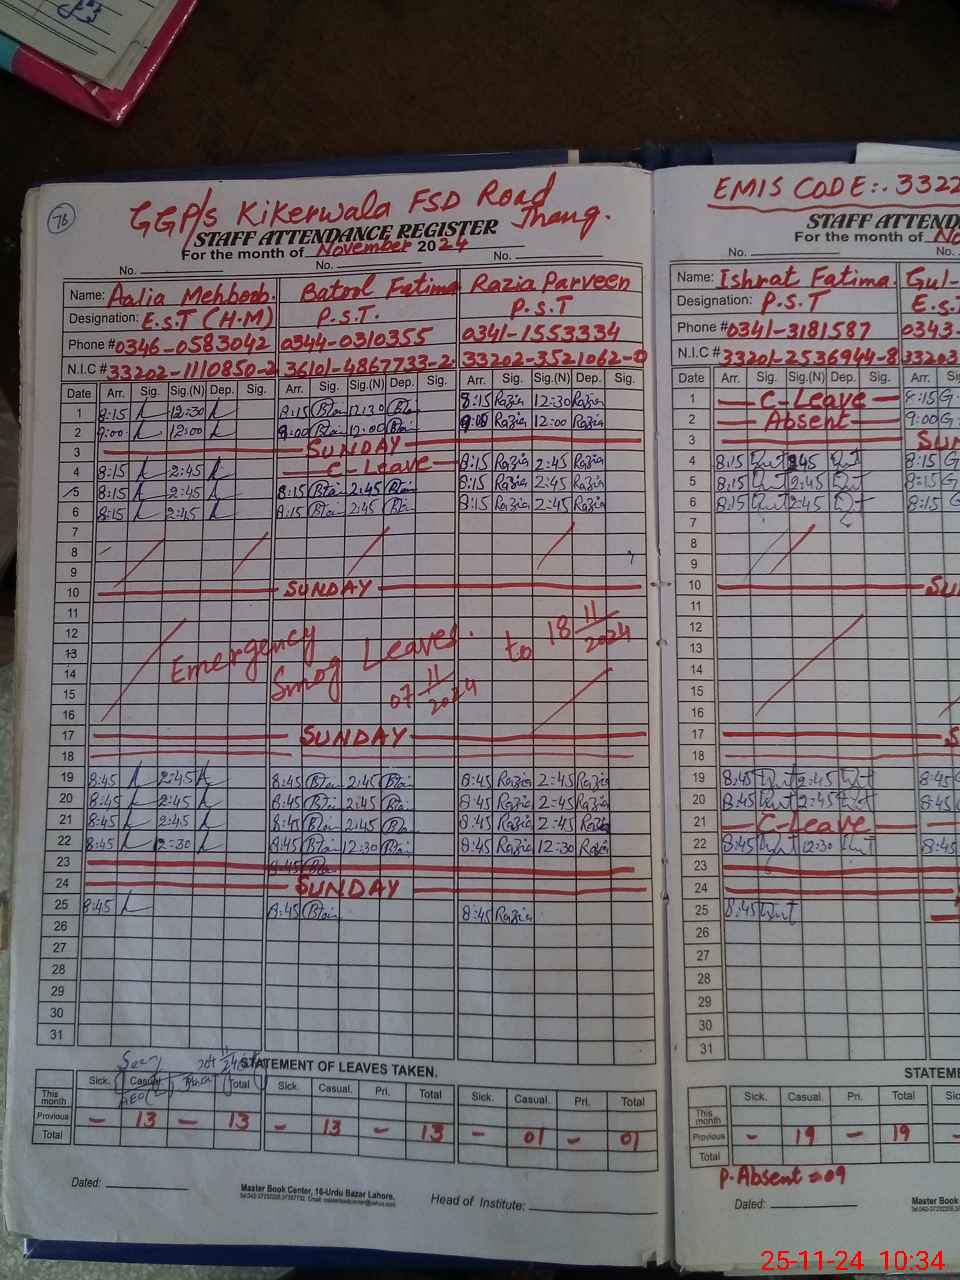 78
GGP/S Kikerwala FSD Road
Jhang.
STAFF ATTENDANCE REGISTER
For the month of November 2024
No. No. No.
Name: Aalia Mehboob. Batool Fatima Razia Parveen
Designation: E.S.T (H.M) P.S.T. P.S.T
Phone # 0346-0583042 0344-0310355 0341-1553334
N.I.C # 33202-1110850-2 36101-4867733-2 33202-3521062-0
Date Arr. Sig. Sig.(N) Dep. Sig. Arr. Sig. Sig.(N) Dep. Sig. Arr. Sig. Sig.(N) Dep. Sig.
1 8:15 12:30 8:15 12:30 8:15 Razia 12:30 Razia
2 9:00 12:00 9:00 12:00 9:00 Razia 12:00 Razia
3 SUNDAY
4 8:15 2:45 C-Leave 8:15 Razia 2:45 Razia
5 8:15 2:45 8:15 2:45 8:15 Razia 2:45 Razia
6 8:15 2:45 8:15 2:45 8:15 Razia 2:45 Razia
7
8
9
10 SUNDAY
11
12 Emergency
13 Smog Leaves. to 18 11/2024
14
15 07 11/2024
16
17 SUNDAY
18
19 8:45 2:45 8:45 2:45 8:45 Razia 2:45 Razia
20 8:45 2:45 8:45 2:45 8:45 Razia 2:45 Razia
21 8:45 2:45 8:45 2:45 8:45 Razia 2:45 Razia
22 8:45 12:30 8:45 12:30 8:45 Razia 12:30 Razia
23 8:45
24 SUNDAY
25 8:45 8:45 8:45 Razia
26
27
28
29
30
31
STATEMENT OF LEAVES TAKEN.
Sick. Casual. Total Sick. Casual. Pri. Total Sick. Casual. Pri. Total
This month
Previous - 13 - 13 - 13 - 13 - 01 - 01
Total
Dated:
Master Book Center, 16-Urdu Bazar Lahore.
Head of Institute:
EMIS CODE:. 3322
STAFF ATTEND
For the month of No
No.
Name: Ishrat Fatima. Gul-
Designation: P.S.T E.S.
Phone # 0341-3181587 0343-
N.I.C # 33201-2536944-8 33203
Date Arr. Sig. Sig.(N) Dep. Sig. Arr. Sig
1 C-Leave 8:15 G
2 Absent 9:00 G
3 SUN
4 8:15 2:45 8:15 G
5 8:15 2:45 8:15 G
6 8:15 2:45 8:15 G
7
8
9
10 SU
11
12
13
14
15
16
17 S
18
19 8:45 2:45 8:45
20 8:45 2:45 8:45
21 C-Leave
22 8:45 12:30 8:45
23
24
25 8:45
26
27
28
29
30
31
STATEME
Sick. Casual. Pri. Total Sic
This month
Previous - 19 - 19 -
Total
P. Absent = 09
Dated:
Master Book
25-11-24 10:34